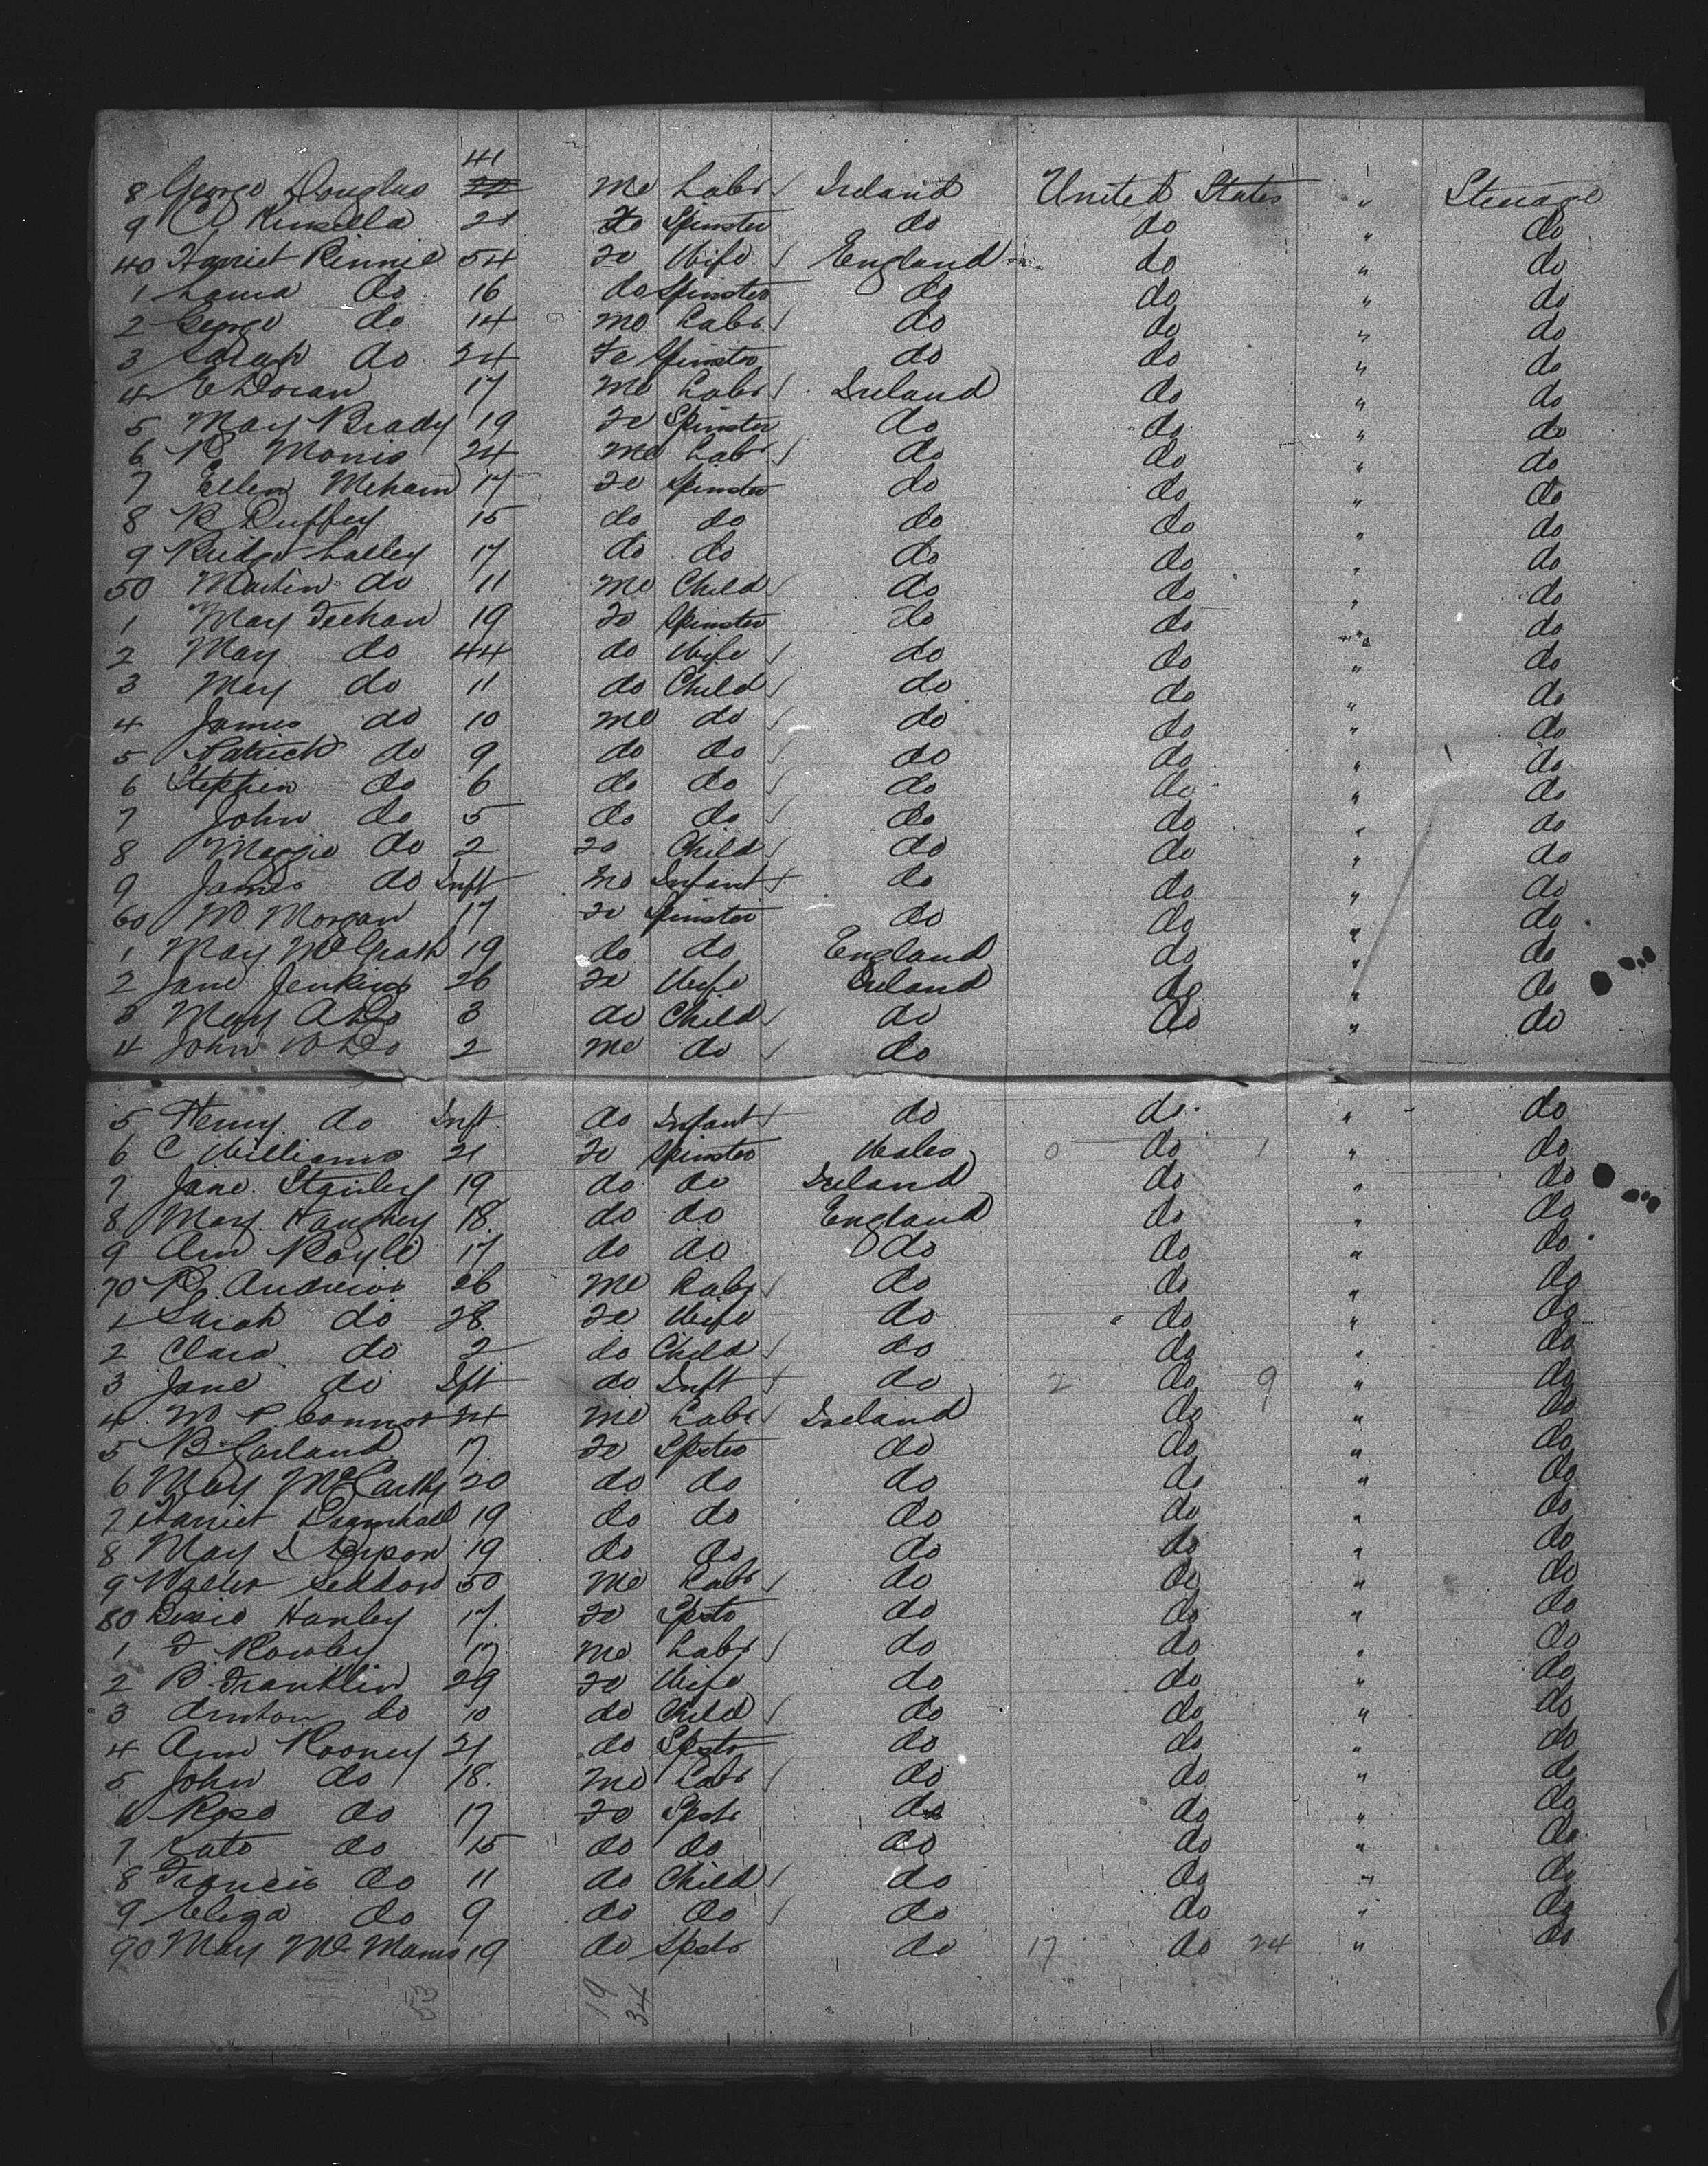 41
8 George Douglas 22 Me Labr Ireland United States " Steerage
9 C Kinsella 21 Fe Spinster do do " do
40 Harriet Rinnie 54 Fe Wife England do " do
1 Laura do 16 do Spinster do do " do
2 George do 14 Me Labr do do " do
3 Sarah do 24 Fe Spinster do do " do
4 E Doran 17 Me Labr Ireland do " do
5 Mary Brady 19 Fe Spinster do do " do
6 P Morris 24 Me Labr do do " do
7 Ellen Mehain 17 Fe Spinster do do " do
8 B Duffey 15 do do do do " do
9 Bridgt Lalley 17 do do do do " do
50 Martin do 11 Me Child do do " do
1 Mary Feehan 19 Fe Spinster do do " do
2 Mary do 44 do Wife do do " do
3 Mary do 11 do Child do do " do
4 James do 10 Me do do do " do
5 Patrick do 9 do do do do " do
6 Stephen do 6 do do do do " do
7 John do 5 do do do do " do
8 Maggie do 2 Fe Child do do " do
9 James do Inft Me Infant do do " do
60 M Morgan 17 Fe Spinster do do " do
1 Mary McGrath 19 do do England do " do
2 Jane Jenkins 26 Fe Wife Ireland do " do
3 Mary A Do 3 do Child do do " do
4 John W Do 2 Me do do
5 Henry do Inft do Infant do do " do
6 C Williams 21 Fe Spinster Wales 0 do 1 " do
7 Jane Stanley 19 do do Ireland do " do
8 Mary Haughey 18 do do England do " do
9 Ann Royle 17 do do do do " do
70 R Andrews 26 Me Labr do do " do
1 Sarah do 28 Fe Wife do " do " do
2 Clara do 2 do Child do do " do
3 Jane do Ift do Inft do 2 do 9 " do
4 M P. Connor 24 Me Labr Ireland do " do
5 B Garland 17 Fe Spster do do " do
6 Mary McCarthy 20 do do do do " do
7 Harriet Bramhall 19 do do do do " do
8 Mary 19 do do do do " do
9 Walter Seddon 50 Me Labr do do " do
80 Bessie Hanley 17 Fe Spstr do do " do
1 F Rowley 17 Me Labr do do " do
2 B Franklin 29 Fe Wife do do " do
3 do 10 do Child do do " do
4 Ann Rooney 21 do Spstr do do " do
5 John do 18 Me Labr do do " do
6 Rose do 17 Fe Spstr do do " do
7 Kate do 15 do do do do " do
8 Francis do 11 do Child do do " do
9 Eliza do 9 do do do do " do
90 Mary McManus 19 do Spstr do 17 do 24 " do
53 19 34